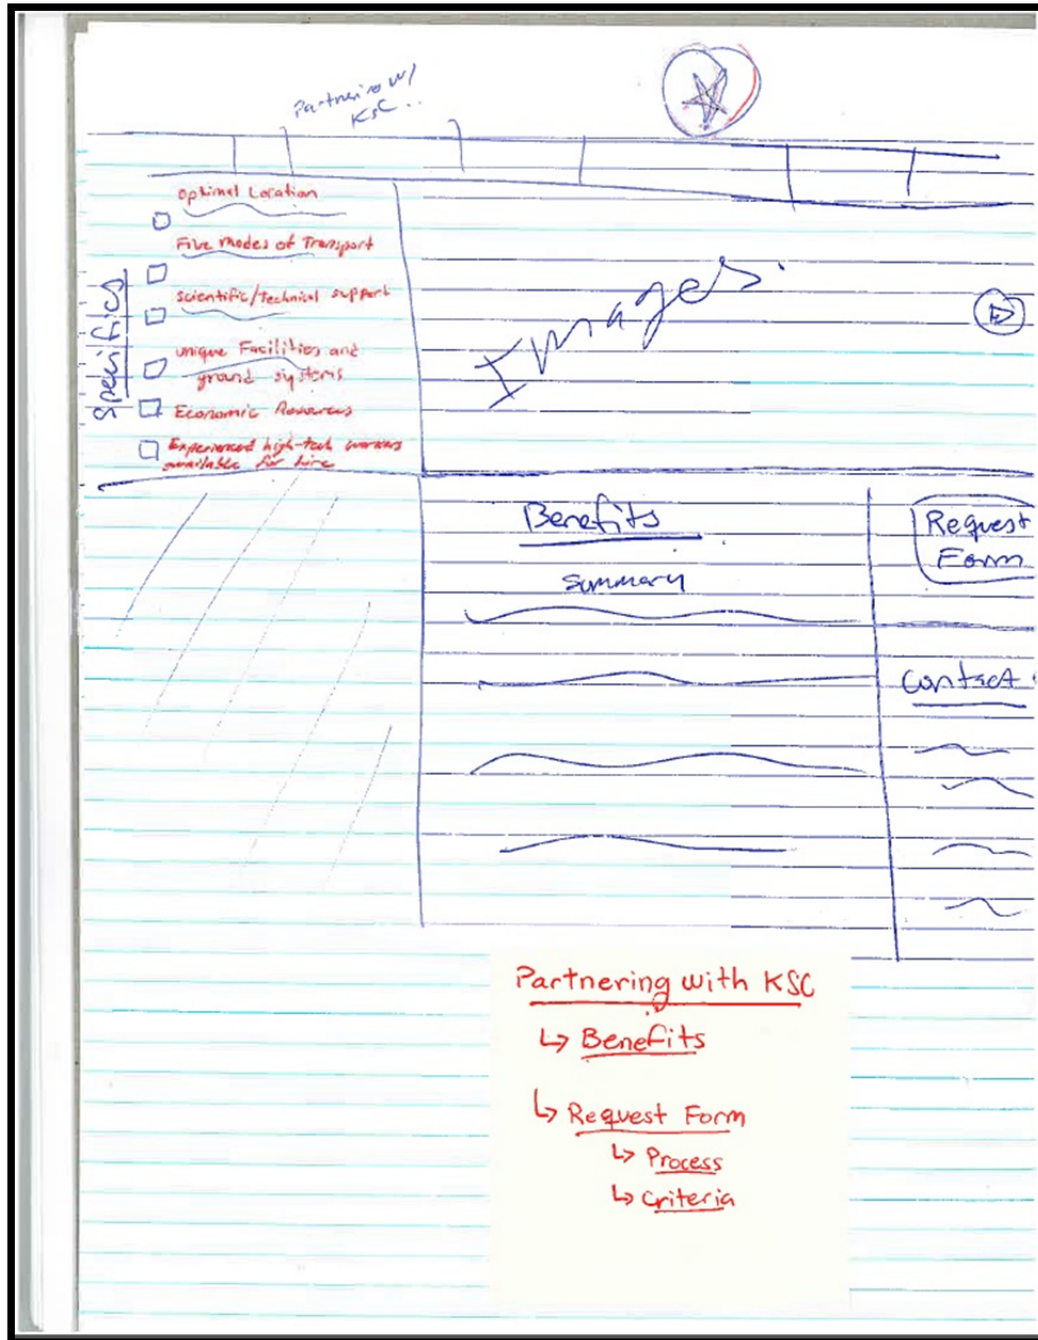 Partnering w/
KSC..
Specifics
Optimal Location
Five modes of Transport
Scientific/Technical support
unique Facilities and
ground systems
Economic Resources
Experienced high-tech workers
available for hire
Images
Benefits
Summary
Request
Form
Contact
Partnering with KSC
↳ Benefits
↳ Request Form
↳ Process
↳ Criteria